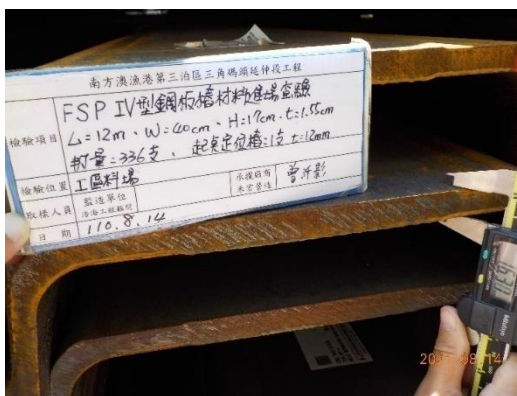 南方澳漁港第三泊區三角碼頭延伸段工程
檢驗項目
FSP IV型鋼板樁材料進場查驗
L=12m、W=40cm、H=17cm、t=1.55cm
數量=336支、起吊定位樁=1支 t=12mm
檢驗位置 工區料場
取樣人員 監造單位
承攬廠商
日期 110.8.14